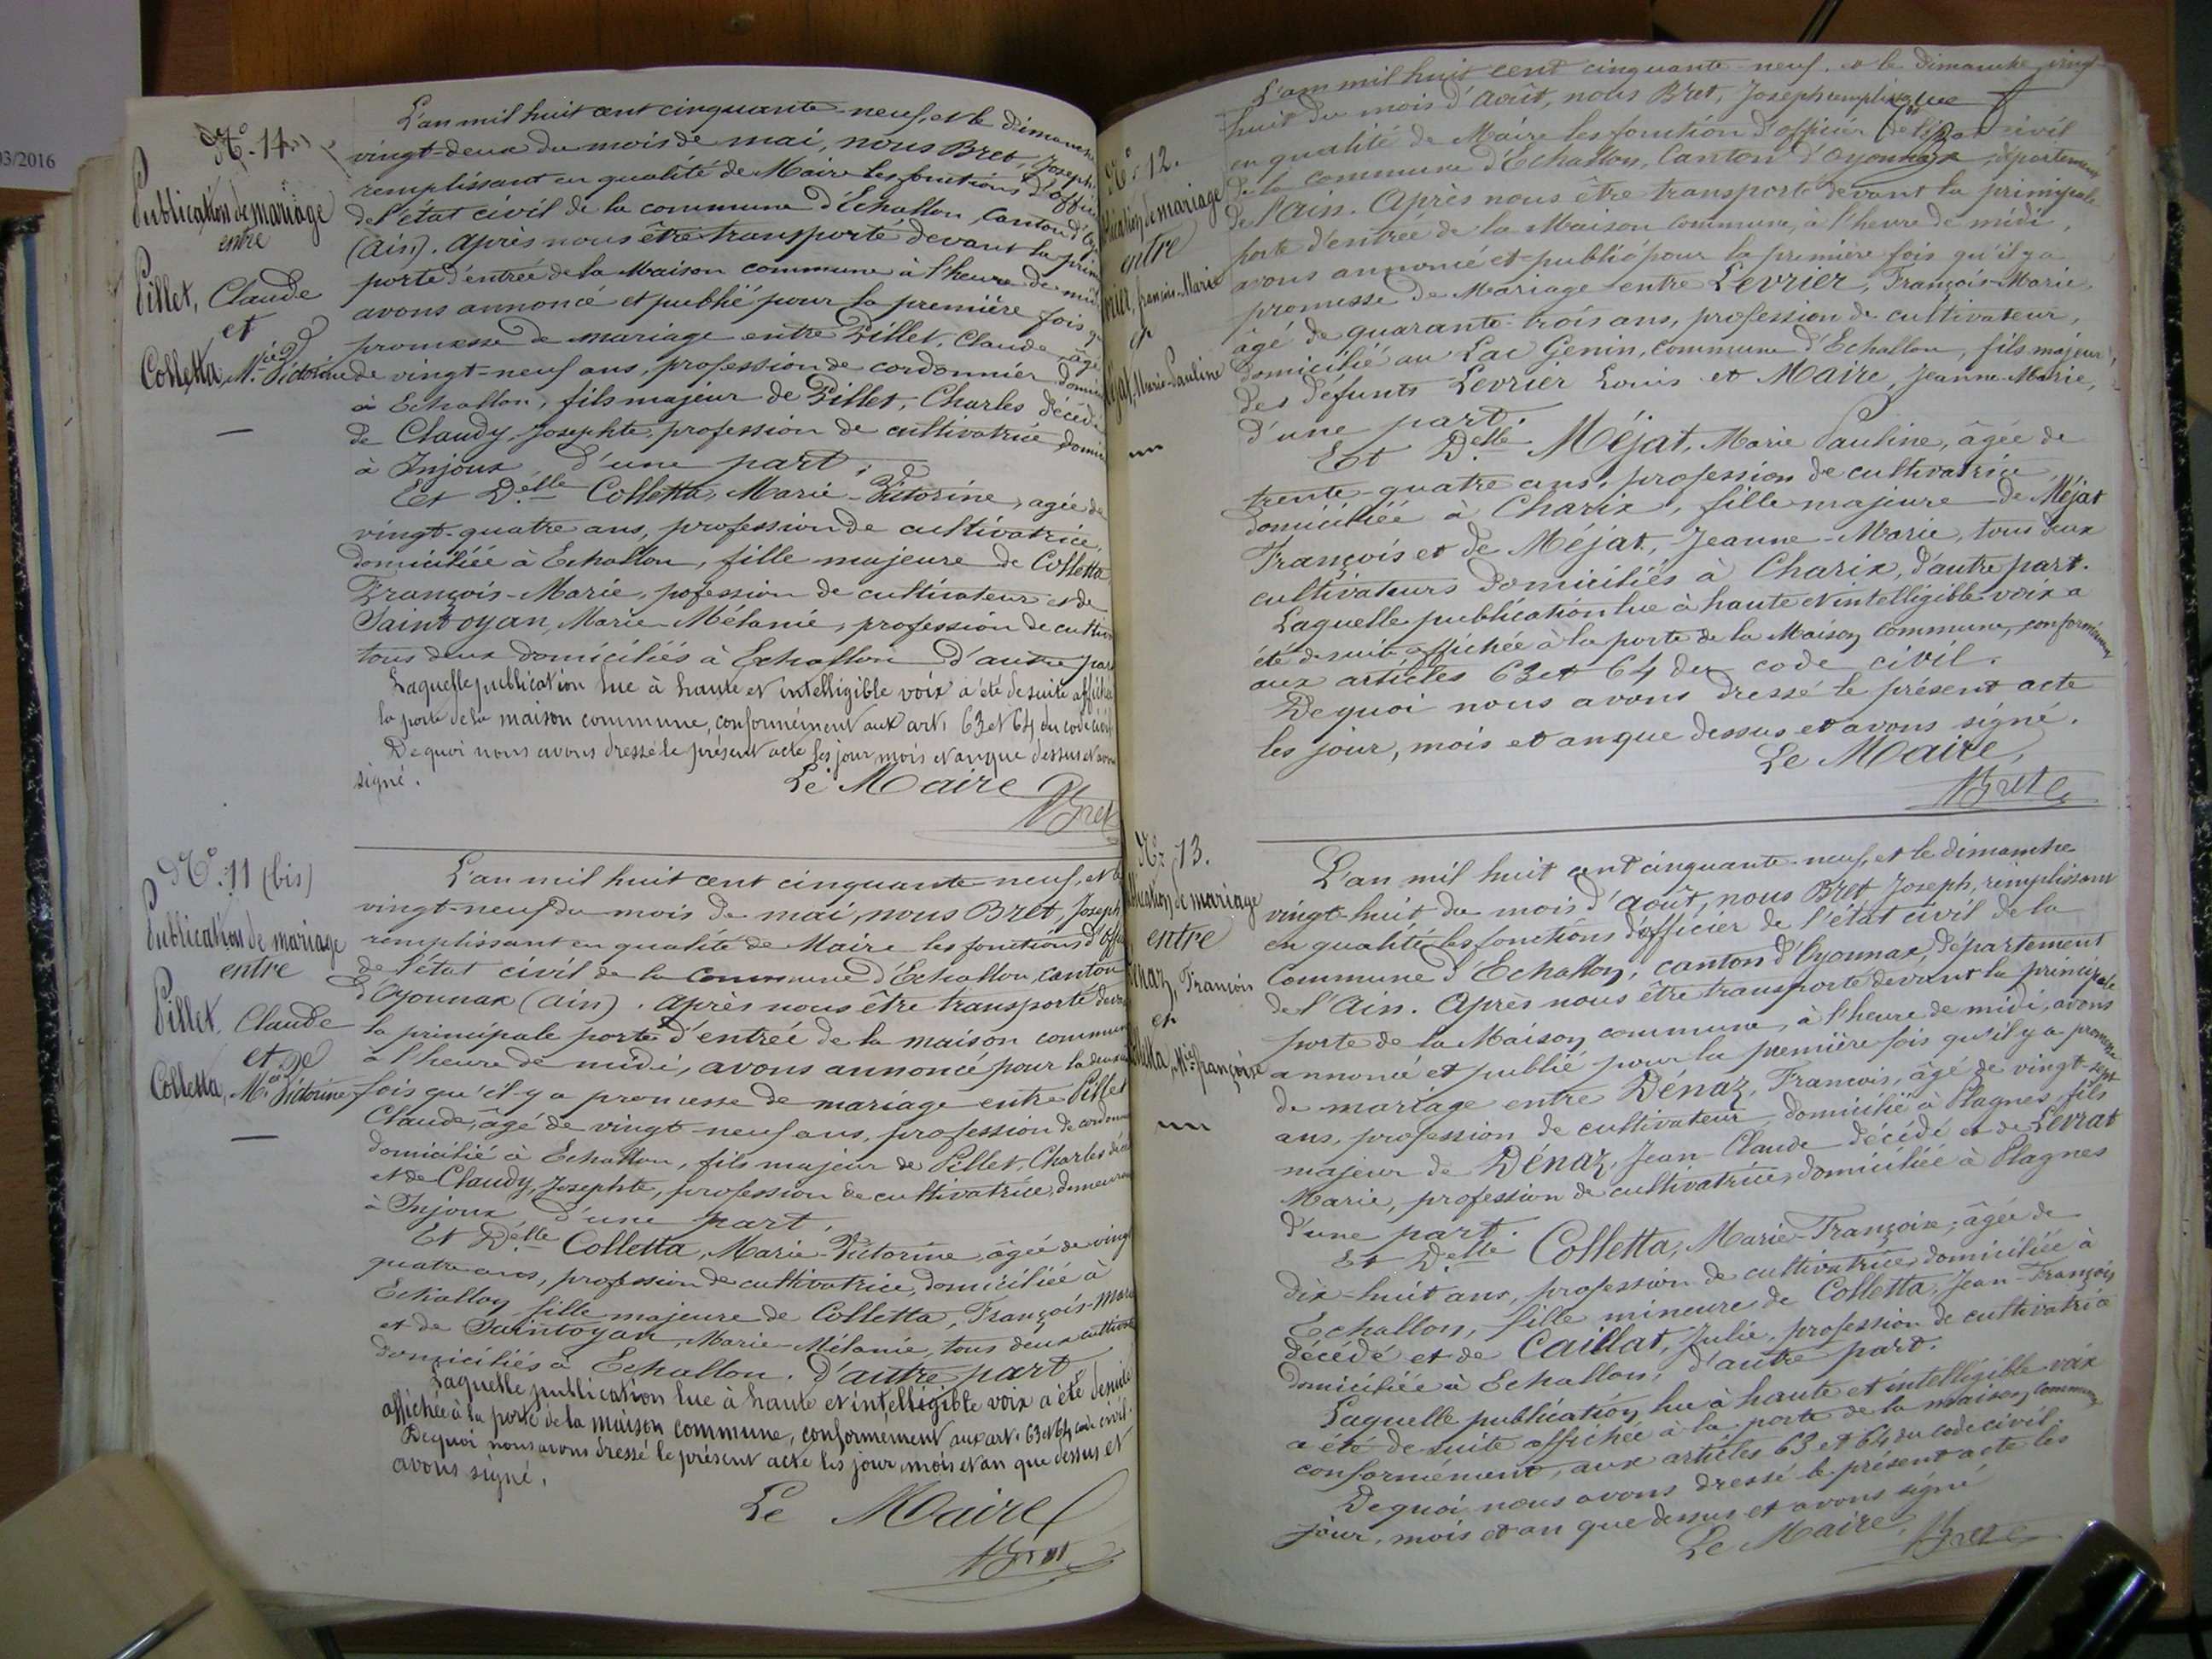 03/2016
N.º 11.
Publication de mariage
entre
Pillet, Claude
et
Colletta, M.ie Victorine
L'an mil huit cent cinquante-neuf, et le dimanche
vingt-deux du mois de mai, nous Bret, Joseph,
remplissant en qualité de Maire les fonctions d'offici
de l'état civil de la commune d'Echallon, Canton d'Oy
(Ain). Après nous être transporté devant la prin
porte d'entrée de la Maison commune à l'heure de midi
avons annoncé et publié pour la première fois qu
promesse de mariage entre Pillet, Claude, âgé
de vingt-neuf ans, profession de cordonnier domici
à Echallon, fils majeur de Pillet, Charles décédé
de Claudy, Josephte, profession de cultivatrice domici
à Injoux, d'une part;
Et D.elle Colletta, Marie-Victorine, agée de
vingt-quatre ans, profession de cultivatrice,
domiciliée à Echallon, fille majeure de Colletta
François-Marie, pofession de cultivateur et de
Saintoyan, Marie-Mélanie, profession de cultiv
tous deux domiciliés à Echallon d'autre part
Laquelle publication lue à haute et intelligible voix a été de suite affichée
la porte de la maison commune, conformément aux art. 63 et 64 du code civil
De quoi nous avons dressé le présent acte les jour, mois et an que dessus et avons
signé.
Le Maire
Bret
N.º 11 (bis)
Publication de mariage
entre
Pillet, Claude
et de
Colletta, M.ie Victorine
L'an mil huit cent cinquante-neuf, et le
vingt-neuf du mois de mai, nous Bret, Joseph
remplissant en qualité de Maire les fonctions d'offi
de l'état civil de la Commune d'Echallon, canton
d'Oyonnax (Ain). Après nous être transporté deva
la principale porte d'entrée de la maison commun
à l'heure de midi, avons annoncé pour la deuxiè
fois qu'il y a promesse de mariage entre Pillet
Claude, âgé de vingt-neuf ans, profession de cordonn
domicilié à Echallon, fils majeur de Pillet, Charles déc
et de Claudy, Josephte, profession de cultivatrice, demeuran
à Injoux d'une part.
Et D.elle Colletta, Marie-Victorine, âgée de vingt
quatre ans, profession de cultivatrice, domiciliée à
Echallon, fille majeure de Colletta, François-Marie
et de Saintoyan, Marie-Mélanie, tous deux cultivat
domiciliés à Echallon. d'autre part
Laquelle publication lue à haute et intelligible voix a été de suite
affichée à la porte de la maison commune, conformement aux art. 63 et 64 code civil.
De quoi nous avons dressé le présent acte les jour, mois et an que dessus et
avons signé.
Le Maire
Bret
N.º 12.
blication de mariage
entre
vrier, François-Marie
et
éjat, Marie-Pauline
L'an mil huit cent cinquante-neuf. et le dimanche vingt-
huit du mois d'Août, nous Bret, Joseph
en qualité de Maire les fonction d'officier de l'état civil
de la commune d'Echallon, Canton d'Oyonnax, département
de l'Ain. Après nous être transporté devant la principale
porte d'entrée de la Maison commune, à l'heure de midi,
avons annoncé et publié pour la première fois qu'il y a
promesse de Mariage entre Levrier, François-Marie,
âgé de quarante-trois ans, profession de cultivateur,
domicilié au Lac Genin, commune d'Echallon, fils majeur
des défunts Levrier Louis et Maire, Jeanne-Marie,
d'une part.
Et D.elle Méjat, Marie Pauline, âgée de
trente-quatre ans, profession de cultivatrice
domiciliée à Charix, fille majeure de Méjat
François et de Méjat, Jeanne-Marie, tous deux
cultivateurs domiciliés à Charix, d'autre part.
Laquelle publication lue à haute et intelligible voix a
été de suite affichée à la porte de la Maison commune, conformément
aux articles 63 et 64 du code civil.
De quoi nous avons dressé le présent acte
les jour, mois et an que dessus et avons signé.
Le Maire,
Bret
Nº 13.
blication de mariage
entre
énaz, François
et
lletta, M.ie Françoise
L'an mil huit cent cinquante-neuf, et le dimanche
vingt-huit du mois d'août, nous Bret Joseph, remplissant
en qualité les fonctions d'officier de l'état civil de la
Commune d'Echallon, canton d'Oyonnax, département
de l'Ain. Après nous être transporté devant la principale
porte de la Maison commune, à l'heure de midi, avons
annoncé et publié pour la première fois qu'il y a promesse
de mariage entre Dénaz, Francois, âgé de vingt-sept
ans, profession de cultivateur, domicilié à Plagnes, fils
majeur de Dénaz, Jean-Claude décédé et de Levrat
Marie, profession de cultivatrice, domiciliée à Plagnes
d'une part.
Et D.elle Colletta, Marie-Françoise, âgée de
dix-huit ans, profession de cultivatrice, domiciliée à
Echallon, fille mineure de Colletta, Jean-François
décédé et de Caillat, Julie, profession de cultivatrice
domiciliée à Echallon, d'autre part.
Laquelle publication lue à haute et intelligible voix
a été de suite affichée à la porte de la maison commune
conformément, aux articles 63 et 64 du code civil.
De quoi nous avons dressé le présent acte les
jour, mois et an que dessus et avons signé
Le Maire, Bret